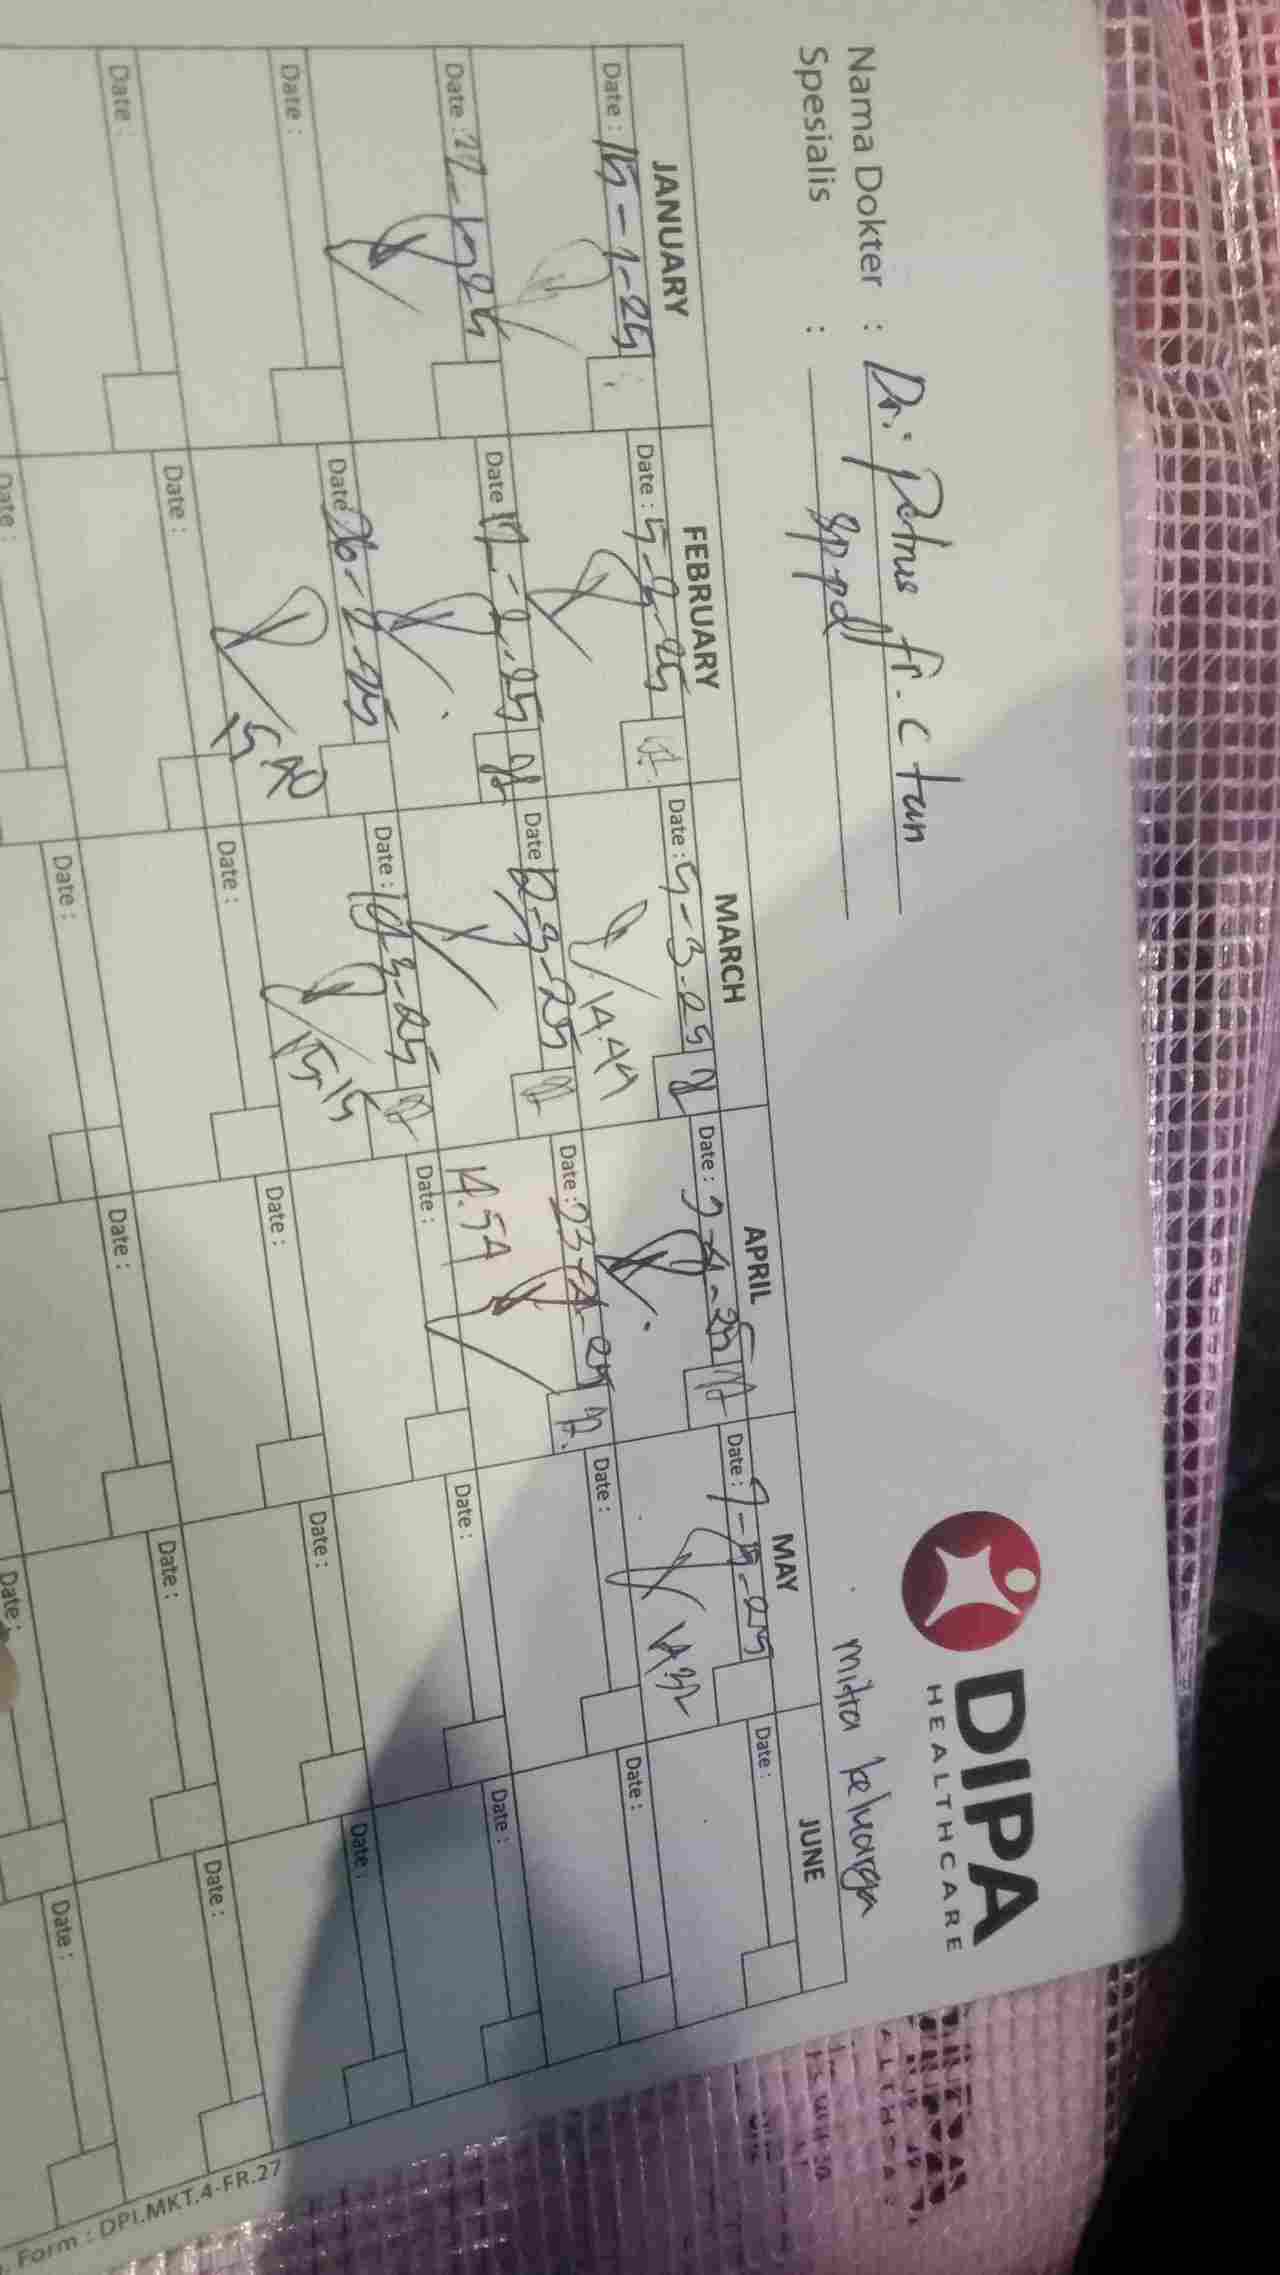 DIPA
HEALTHCARE
Nama Dokter : Dr. petrus fr. c tan
Spesialis : sppd
mitra keluarga
JANUARY FEBRUARY MARCH APRIL MAY JUNE
Date : 15-1-25 Date : 5-2-25 Date : 5-3-25 Date : Date : 7-5-25 Date :
14.44 14.32
Date : Date : Date : 12-3-25 Date : 23-4-25 Date : Date :
14.54
Date : Date : 26-2-25 Date : Date : Date : Date :
15.15
Date : Date : Date : Date : Date : Date :
Date : Date : Date : Date : Date :
Date : Date :
Form : DPI.MKT.4-FR.27